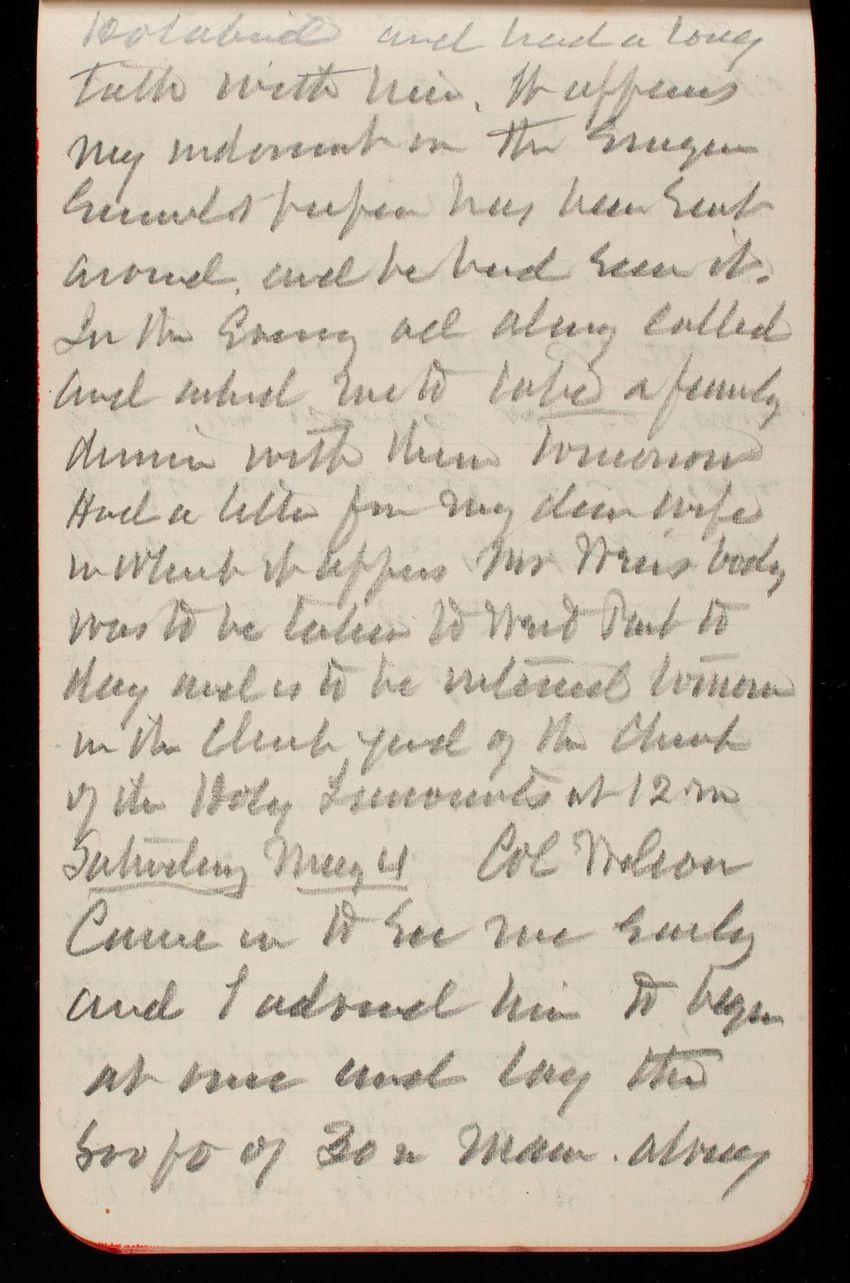 Holabird and had a long
talk with him. It appears
my indorsement on the
paper has been sent
around, and he had seen it.
In the Evening all along called
and asked me to take a family
dinner with them tomorrow
Had a letter from my dear wife
in which it appears Mr body
was to be taken to West Point to
day and is to be interred tomorrow
in the Church yard of the Church
of the Holy Innocents at 12 m
Saturday May 4 Col Wilson
Came in to See me Early
and I advised him to begin
at once and lay the
600 ft of 30 in Main along